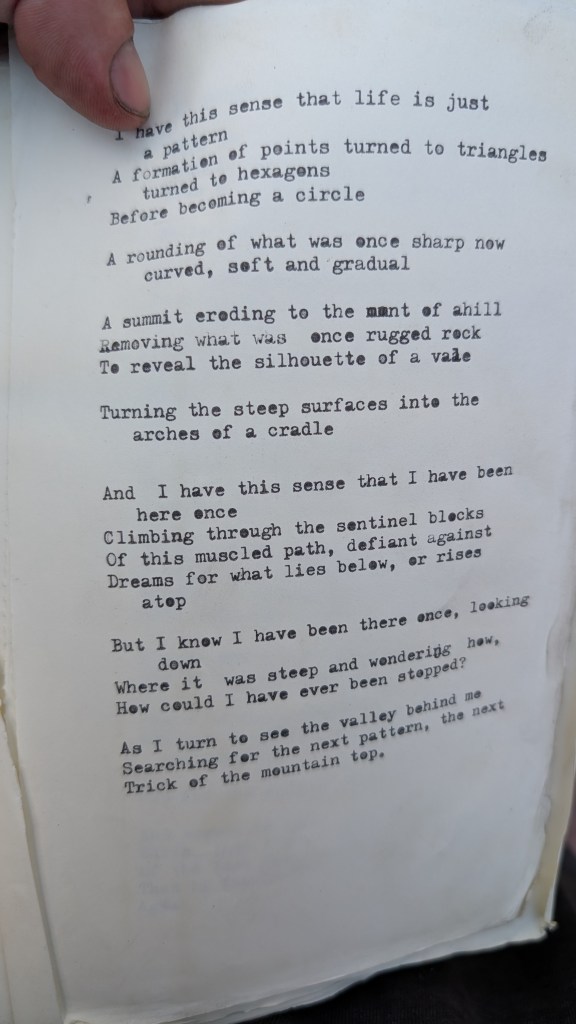 I have this sense that life is just
a pattern
A formation of points turned to triangles
turned to hexagons
Before becoming a circle
A rounding of what was once sharp now
curved, soft and gradual
A summit eroding to the of ahill
Removing what was once rugged rock
To reveal the silhouette of a vale
Turning the steep surfaces into the
arches of a cradle
And I have this sense that I have been
here once
Climbing through the sentinel blocks
Of this muscled path, defiant against
Dreams for what lies below, or rises
atop
But I know I have been there once, looking
down
Where it was steep and wondering how,
How could I have ever been stopped?
As I turn to see the valley behind me
Searching for the next pattern, the next
Trick of the mountain top.